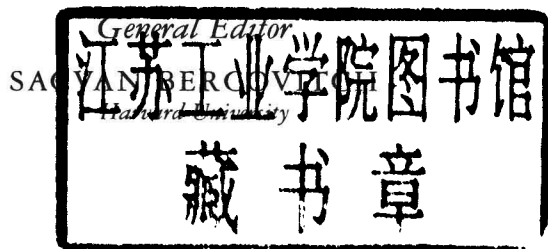 General Editor
SACVAN BERCOVITCH
Harvard University
江苏工业学院图书馆
藏书章